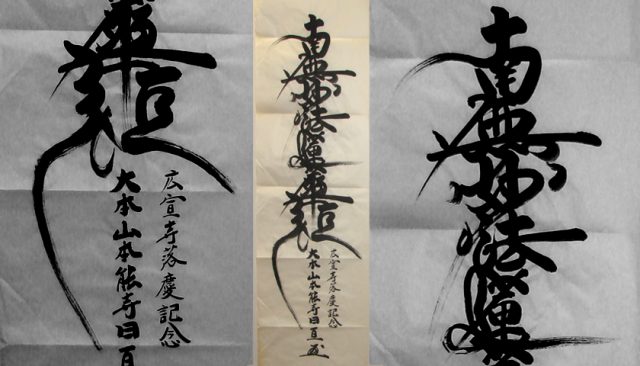 華經
広宣寺落慶記念
大本山本能寺日
南無妙法蓮華經
広宣寺落慶記念
大本山本能寺日
南無妙法蓮